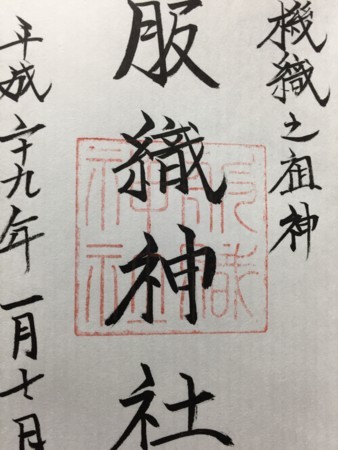 機織之祖神
服織神社
平成二十九年一月七日
服織
神社